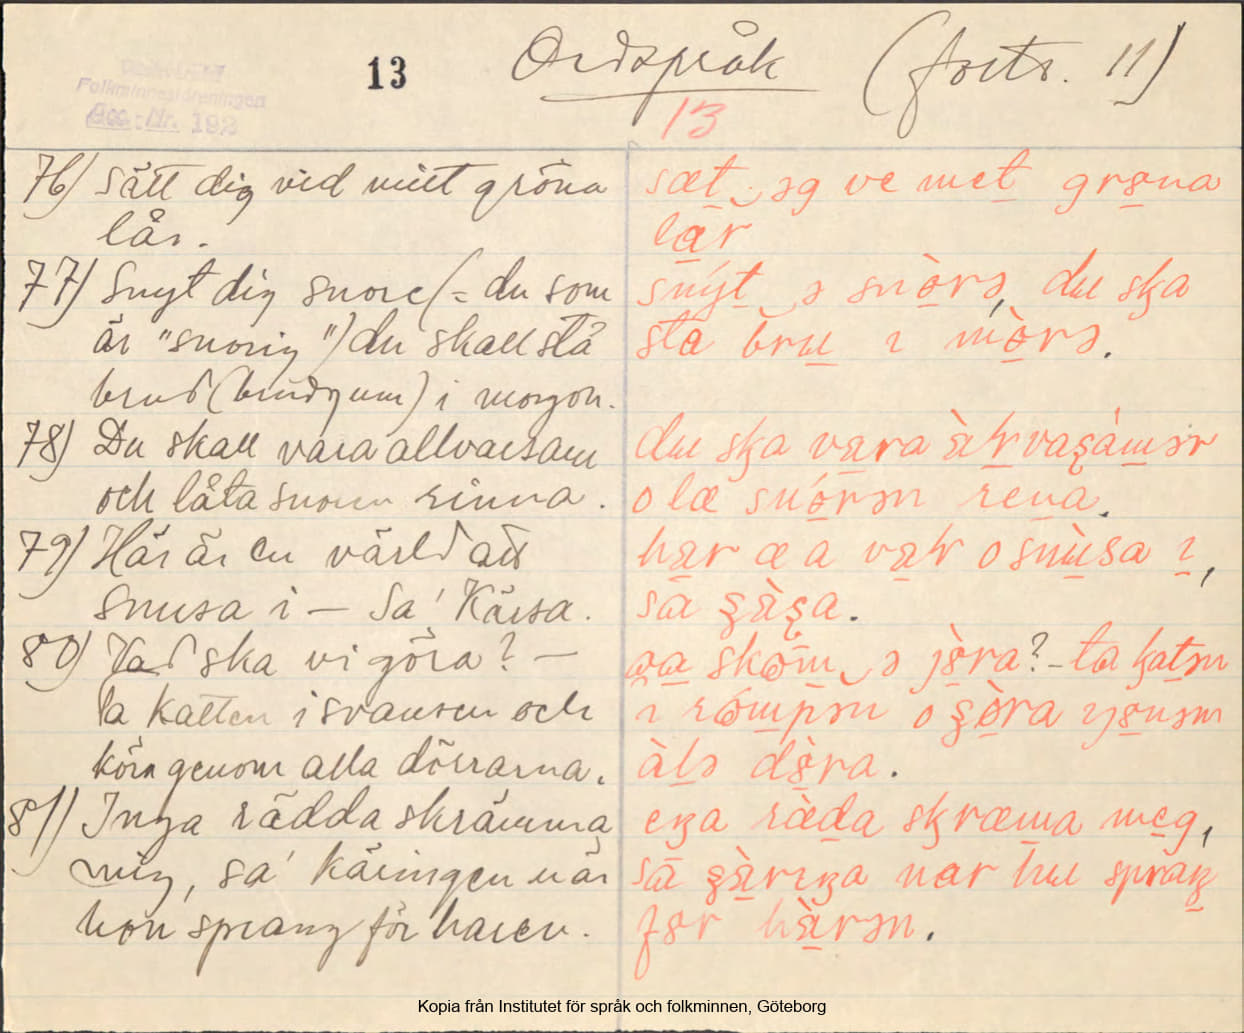 Folkminnesföreningen
Acc. Nr. 192
13 Ordspråk (forts. 11)
13
76) Sätt dig vid mitt gröna
lår.
sæt əg ve met grøna
lar
77) Snyt dig snore (= du som
är "snorig") du skall stå
brud (brudgum) i morgon.
snyt ə snòrə, du ska
sta bru ı mòrə.
78) Du skall vara allvarsam
och låta snoren rinna.
du ska vara àlvasámər
o læ snórən rena.
79) Här är en värld att
snusa i – Sa' Kärsa.
har æ a val o snùsa ı,
sa
80) Vad ska vi göra? –
Ta katten i svansen och
köra genom alla dörrarna.
skom ə jøra? – ta katən
ı rómpən o
àlə døra.
81) Inga rädda skrämma
mig, sa' käringen när
hon sprang för haren.
eŋa ræda skræma meg,
sa nar hu spraŋ
før hàrən.
Kopia från Institutet för språk och folkminnen, Göteborg